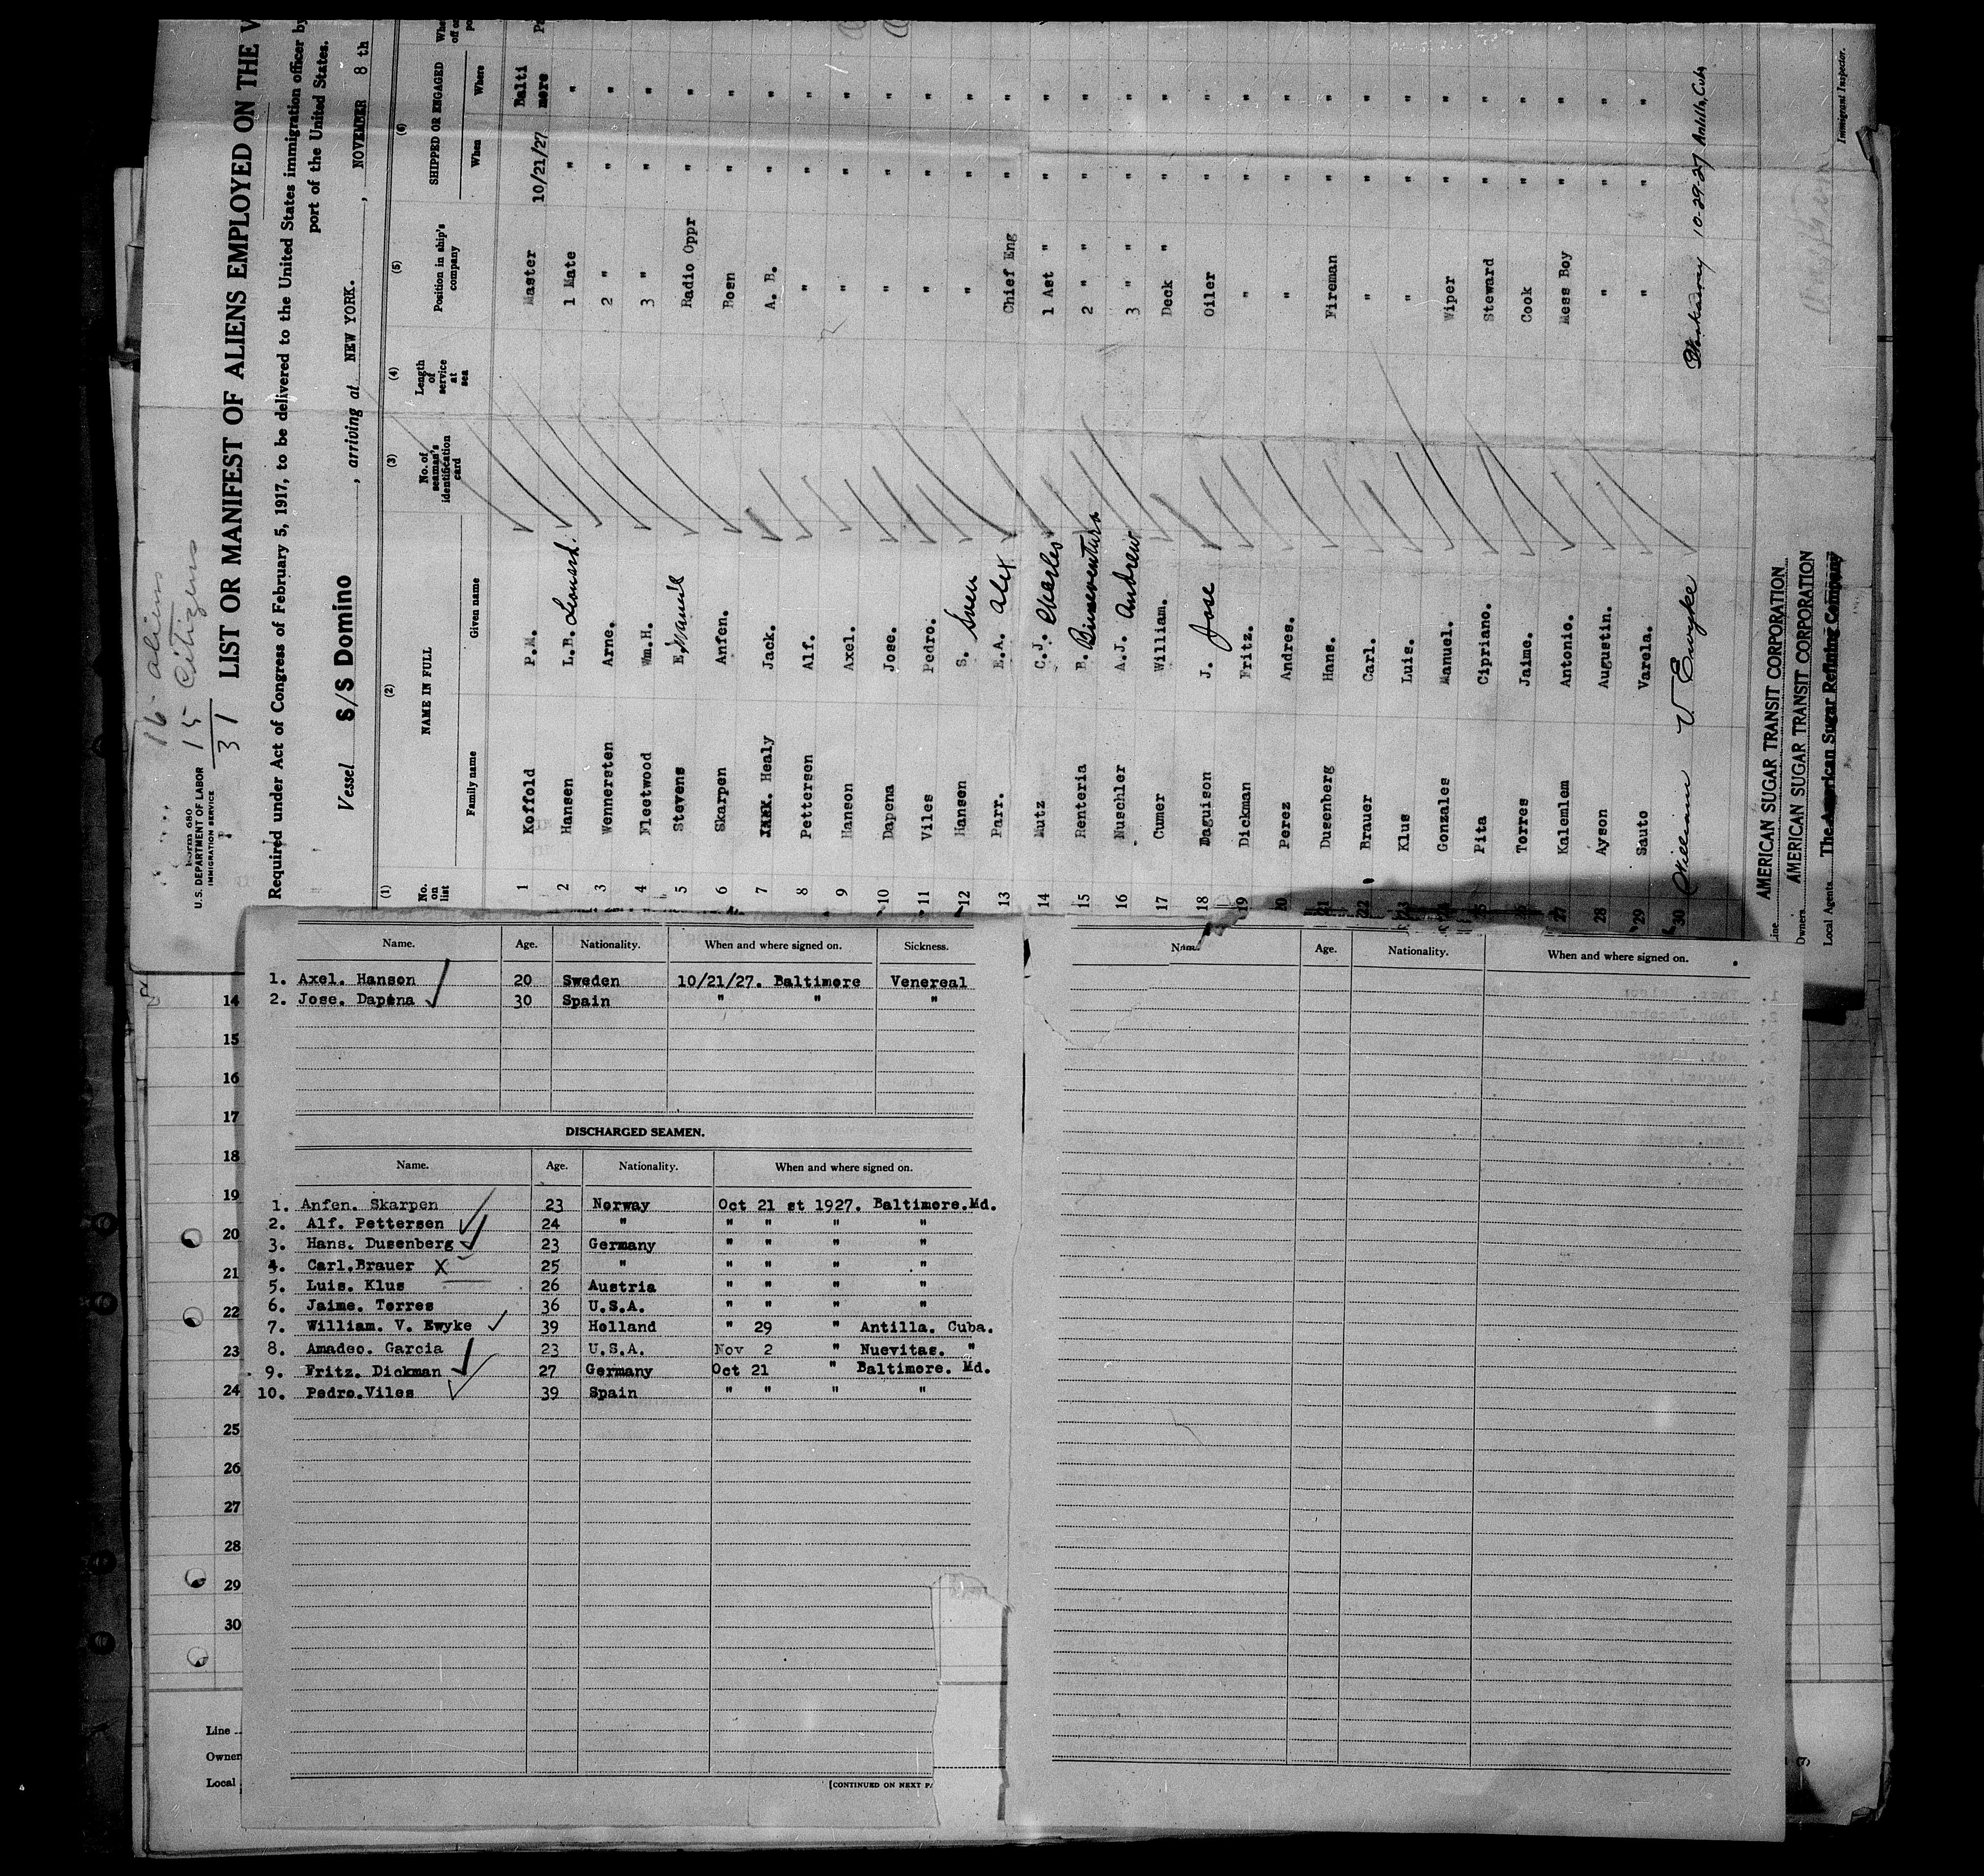 16 aliens
15 Citizens
31
Form 680
U.S. DEPARTMENT OF LABOR
IMMIGRATION SERVICE
LIST OR MANIFEST OF ALIENS EMPLOYED ON THE V
Required under Act of Congress of February 5, 1917, to be delivered to the United States immigration officer by
port of the United States.
Vessel S/S Domino , arriving at NEW YORK. , NOVEMBER 8 th
(1) (2) (3) (4) (5) (6)
No. on list NAME IN FULL No. of seaman's identification card Length of service at sea Position in ship's company SHIPPED OR ENGAGED
Family name Given name When Where
1 Koffold P.M. Master 10/21/27 Balti more
2 Hansen L.B. Leonard. 1 Mate " "
3 Wennersten Arne. 2 " " "
4 Fleetwood Wm.H. 3 " " "
5 Stevens E. Radio Oppr " "
6 Skarpen Anfen. Bosn " "
7 Healy Jack. A. B. " "
8 Pettersen Alf. " " "
9 Hanson Axel. " " "
10 Dapena Jose. " " "
11 Viles Pedro. " " "
12 Hansen S. Sven " " "
13 Parr. E.A. Alex Chief Eng " "
14 Mutz C.J. Charles 1 Ast " " "
15 Renteria B. Buenventura 2 " " " "
16 Nuschler A.J. Andrew 3 " " " "
17 Cumer William. Deck " " "
18 Daguison J. Jose Oiler " "
19 Dickman Fritz. " " "
20 Perez Andres. " " "
21 Dusenberg Hans. Fireman " "
22 Brauer Carl. " " "
23 Klus Luis. " " "
24 Gonzales Manuel. Wiper " "
25 Pita Cipriano. Steward " "
26 Torres Jaime. Cook " "
27 Kalemlem Antonio. Mess Boy " "
28 Ayson Augustin. " " "
29 Sauto Varela. " " "
30 William V Ewyke 10-29-27 Antilla, Cuba
Line AMERICAN SUGAR TRANSIT CORPORATION
Owners AMERICAN SUGAR TRANSIT CORPORATION
Local Agents The American Sugar Refining Company
Immigrant Inspector.
Name. Age. Nationality. When and where signed on. Sickness.
1. Axel. Hanson 20 Sweden 10/21/27. Baltimore Venereal
2. Jose. Dapena 30 Spain " " "
DISCHARGED SEAMEN.
Name. Age. Nationality. When and where signed on.
1. Anfen. Skarpen 23 Norway Oct 21 st 1927. Baltimore.Md.
2. Alf. Pettersen 24 " " " " "
3. Hans. Dusenberg 23 Germany " " " "
4. Carl.Brauer X 25 " " " " "
5. Luis. Klus 26 Austria " " " "
6. Jaime. Torres 36 U.S.A. " " " "
7. William. V. Ewyke 39 Holland " 29 " Antilla. Cuba.
8. Amadeo. Garcia 23 U.S.A. Nov 2 " Nuevitas. "
9. Fritz. Dickman 27 Germany Oct 21 " Baltimore. Md.
10. Pedro.Viles 39 Spain " " " "
[CONTINUED ON NEXT PA
Name. Age. Nationality. When and where signed on.
14
15
16
17
18
19
20
21
22
23
24
25
26
27
28
29
30
Line
Owner
Local
(7)